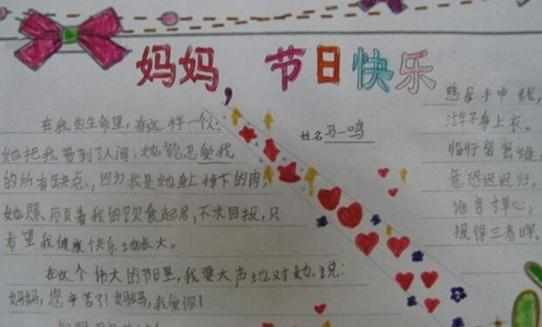 妈妈，节日快乐
姓名 马一鸣
在我的生命里，有这样一个人：
她把我带到了人间，她能忍受我
的所有缺点，因为我是她身上掉下的肉，
她照顾着我的饮食起居，不求回报，只
希望我健康快乐地长大。
在这个伟大的节日里，我要大声地对她说：
妈妈，您辛苦了！妈妈，我爱你！
慈母手中线，
游子身上衣。
临行密密缝，
意恐迟迟归。
谁言寸草心，
报得三春晖。